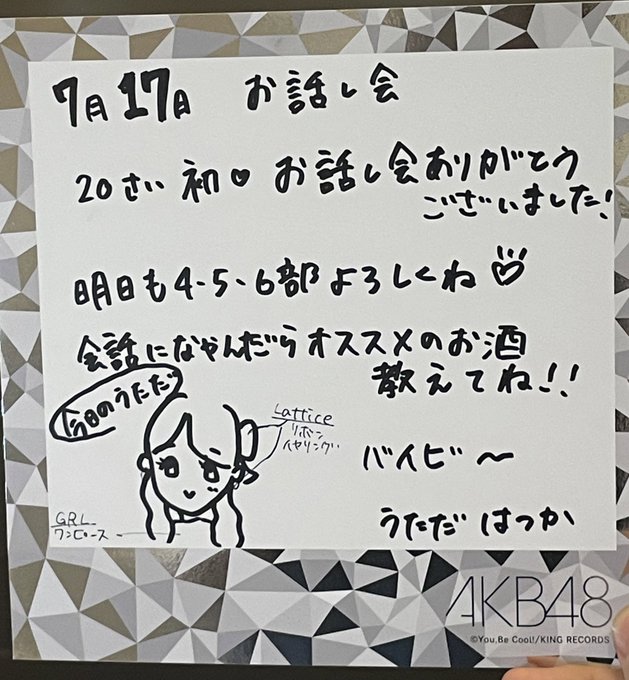 7月17日 お話し会
20さい 初♡ お話し会ありがとう
ございました!
明日も4・5・6部よろしくね♡
会話になやんだらオススメのお酒
教えてね!!
今日のうただ
Lattice
リボン
イヤリング
GRL
ワンピース
バイビ〜
うただ はつか
AKB48
©You,Be Cool!/KING RECORDS